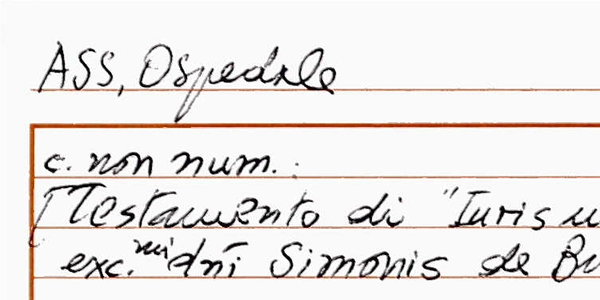 ASS, Ospedale
c. non num.:
[Testamento di "Iuris u
exc.mi dni Simonis de Bu